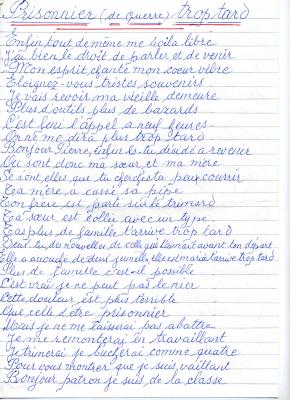 Prisonnier (de Guerre) trop tard
Enfin tout de même me voila libre
J'ai bien le droit de parler et de venir
Mon esprit chante mon coeur vibre
Éloignez-vous tristes souvenirs
Je vais revoir ma vieille demeure
Plus d'outils plus de bazards
C'est leur l'appel a neuf heures
On ne me dira plus trop tard
Bonjour Pierre, enfin tu décidé a revenir
Ou sont donc ma sœur et ma mère
Se sont elles que tu cherches tu peux courrir
Ta mère a cassé sa pipe
Ton frère est parti sur le trimard
Ta sœur est collée avec un type
T'as plus de famille t'arrive trop tard
du nouvelles de celle qui t'aimait avant ton départ
Elle a accouché de deux jumelles, elle est mariée t'arrive trop tard
Plus de famille c'est-il possible
C'est vrai je ne peut pas le nier
Cette douleur est plus terrible
Que celle d'être prisonnier
Mais je ne me laisserai pas abattre
Je me remonterai en travaillant
Je trimerai je bucherai comme quatre
Pour vous montrer que je suis vaillant
Bonjour patron je suis de la classe